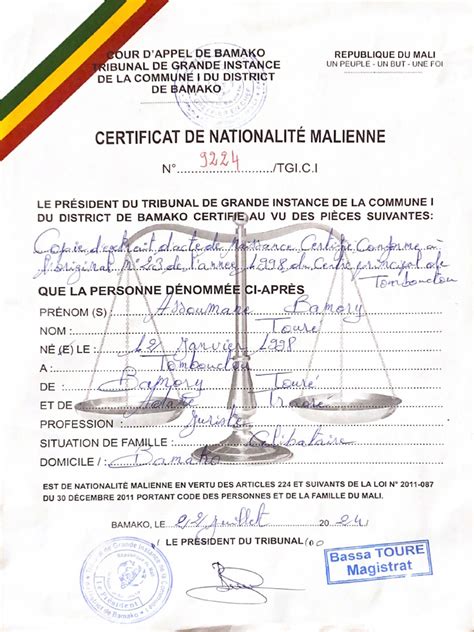 COUR D'APPEL DE BAMAKO
TRIBUNAL DE GRANDE INSTANCE
DE LA COMMUNE I DU DISTRICT
DE BAMAKO
REPUBLIQUE DU MALI
UN PEUPLE - UN BUT - UNE FOI
CERTIFICAT DE NATIONALITÉ MALIENNE
N° 9224 /TGI.C.I
LE PRÉSIDENT DU TRIBUNAL DE GRANDE INSTANCE DE LA COMMUNE I
DU DISTRICT DE BAMAKO CERTIFIE AU VU DES PIÈCES SUIVANTES:
Copie d'extrait d'acte de naissance Certifié Conforme à
l'original N° 23 de l'année 1998 du Centre principal de
Tombouctou
QUE LA PERSONNE DÉNOMMÉE CI-APRÈS
PRÉNOM (S) Assoumane Bamory
NOM : Touré
NÉ (E) LE : 12 Janvier 1998
A : Tombouctou
DE : Bamory Touré
ET DE Traoré
PROFESSION : Juriste
SITUATION DE FAMILLE : Célibataire
DOMICILE / Bamako
EST DE NATIONALITÉ MALIENNE EN VERTU DES ARTICLES 224 ET SUIVANTS DE LA LOI N° 2011-087
DU 30 DÉCEMBRE 2011 PORTANT CODE DES PERSONNES ET DE LA FAMILLE DU MALI.
BAMAKO, LE 22 Juillet 2024
LE PRÉSIDENT DU TRIBUNAL
Bassa TOURE
Magistrat